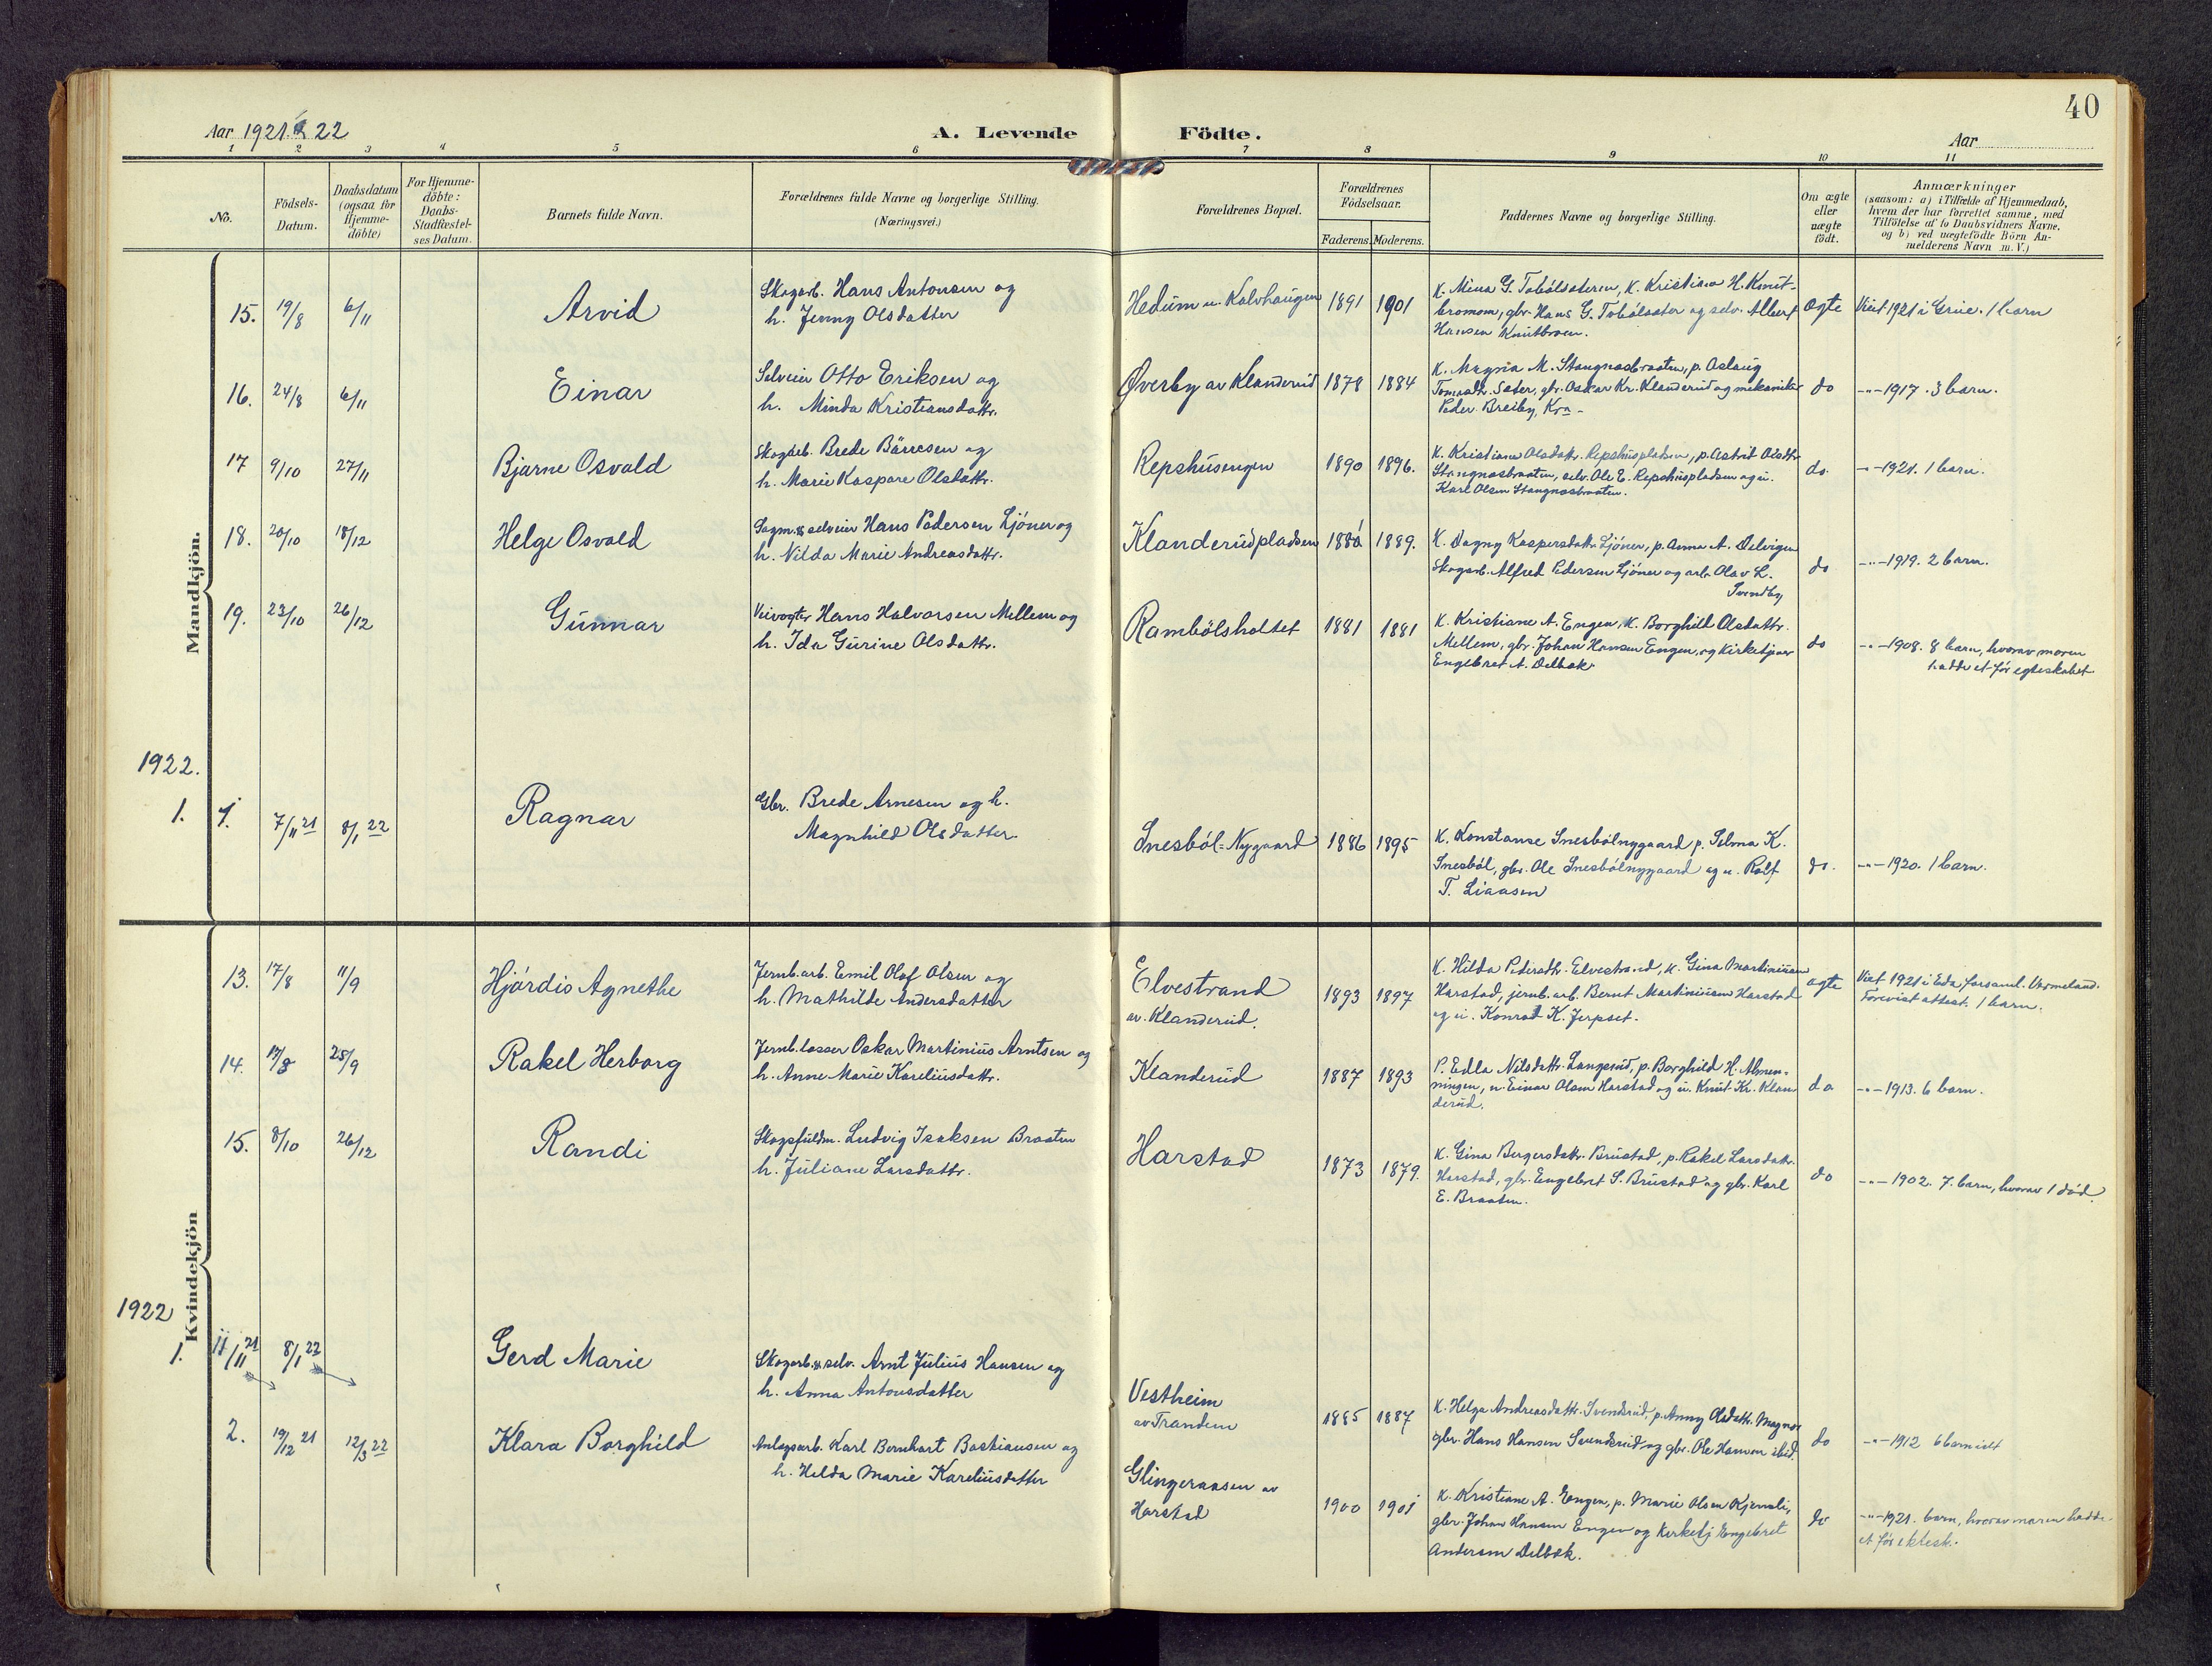 40
Aar 1921 & 22
A. Levende
Födte.
Aar
1 2 3 4 5 6 7 8 9 10 11
No.
Födsels-
Datum.
Daabsdatum
(ogsaa for
Hjemme-
döbte)
For Hjemme-
döbte:
Daabs-
Stadfæstel-
ses Datum.
Barnets fulde Navn.
Forældrenes fulde Navne og borgerlige Stilling.
(Næringsvei.)
Forældrenes Bopæl.
Forældrenes
Födselsaar.
Faderens. Moderens.
Faddernes Navne og borgerlige Stilling.
Om ægte
eller
uægte
födt.
Anmærkninger
(saasom: a) i Tilfælde af Hjemmedaab,
hvem der har forrettet samme, med
Tilföielse af to Daabsvidners Navne,
og b) ved uægtefödte Börn An-
melderens Navn m. V.)
Mandkjön.
15. 19/8 6/11 Arvid
Skogarb. Hans Antonsen og
h. Jenny Olsdatter
Hedum u. Kalvhaugen 1891 1901
K. Mina G. Tobölsæteren, K. Kristiane H. Knut-
bromom, gbr. Hans G. Tobölsæter og selv. Albert
Hansen Knutbroen.
ægte
Viet 1921 i Grue. 1 barn
16. 24/8 6/11 Einar
Selveier Otto Eriksen og
h. Minda Kristiansdattr.
Øverby av Klanderud 1878 1884
K. Magna M. Stangnæsbraaten, p. Aslaug
Tomasdtr. Sæter, gbr. Oskar Kr. Klanderud og mekaniker
Peder Breiby, Kra -
do
-"- 1917. 3 barn.
17 9/10 27/11 Bjarne Osvald
Skogarb. Brede Börresen og
h. Marie Kaspare Olsdattr.
Repshusengen 1890 1896.
K. Kristiane Olsdattr. Repshuspladsen, p. Astrid Olsdtr
Stangnæsbraaten, selv. Ole E. Repshuspladsen og u.
Karl Olsen Stangnæsbraaten.
do.
-"- 1921. 1 barn.
18. 20/10 18/12 Helge Osvald
Sagm. & selveier Hans Pedersen Ljöner og
h. Nilda Marie Andreasdattr.
Klanderudpladsen 1880 1889.
K. Dagny Kaspersdattr. Ljöner, p. Anna A. Delvigen
Skogarb. Alfred Pedersen Ljöner og arb. Olav L.
Svendby
do
-"- 1919. 2 barn.
19. 23/10 26/12 Gunnar
Veivogter Hans Halvorsen Mellem og
h. Ida Gurine Olsdattr.
Rambölsholtet 1881 1881
K. Kristiane A. Engen, K. Borghild Olsdattr.
Mellem, gbr. Johan Hansen Engen, og Kirketjener
Engebret A. Delbæk
do
-"- 1908. 8 barn, hvorav moren
hadde et før egteskabet
1922.
1. 1. 7/11 21 8/1 22 Ragnar
Gbr. Brede Arnesen og h.
Magnhild Olsdatter.
Snesböl=Nygaard 1886 1895
K. Konstanse Snesbölnygaard p. Selma K.
Snesböl, gbr. Ole Snesbölnygaard og u. Rolf
T. Liaasen
do.
-"- 1920. 1 barn.
Kvindekjön
13. 17/8 11/9 Hjördis Agnethe
Jernb.arb. Emil Olaf Olsen og
h. Mathilde Andersdatter
Elvestrand
av. Klanderud. 1893 1897
K. Hilda Pedersdtr. Elvestrand, K. Gina Martiniusen
Harstad, jernb. arb. Bernt Martiniusen Harstad
og u. Konrad K. Jerpset.
ægte
Viet 1921 i Eda, forsaml. Værmeland.
Forevist attest. 1 barn.
14. 17/8 25/9 Rakel Herborg
Jernb.losser Oskar Martinius Arntsen og
h. Anne Marie Kareliusdattr.
Klanderud 1887 1893
P. Edla Nilsdattr. Langerud, p. Borghild H. Almen-
ningen, u. Einar Olsen Harstad og u. Knut Kr. Klan
derud.
do
-"- 1913. 6 barn.
15. 8/10 26/12 Randi
Skogsfuldm. Ludvig Isaksen Braaten
h. Juliane Larsdattr.
Harstad 1873 1879.
K. Gina Bergersdattr. Brustad, p. Rakel Larsdattr.
Harstad, gbr. Engebret S. Brustad og gbr. Karl
E. Braaten.
do
-"- 1902. 7. barn, hvorav 1 död.
1922
1. 11/11 21 8/1 22 Gerd Marie
Skogarb. & selv. Arnt Julius Hansen og
h. Anna Antonsdatter
Vestheim
av Trandem 1885 1887
K. Helga Andreasdattr. Svendsrud, p. Anny Olsdattr. Magnor
gbr. Hans Hansen Svendsrud og gbr. Ole Hansen ibid.
do
-"- 1912 6 barn idt
2. 19/12 21 12/3 22 Klara Borghild
Anlægsarb. Karl Bernhart Bastiansen og
h. Hilda Marie Kareliusdatter
Glingeraasen av
Harstad 1900 1901
K. Kristiane A. Engen, p. Marie Olsen Kjernli,
gbr. Johan Hansen Engen og Kirketj Engebret
Andersen Delbæk.
do
-"- 1921. barn, hvorav moren hadde
et før ektesk.